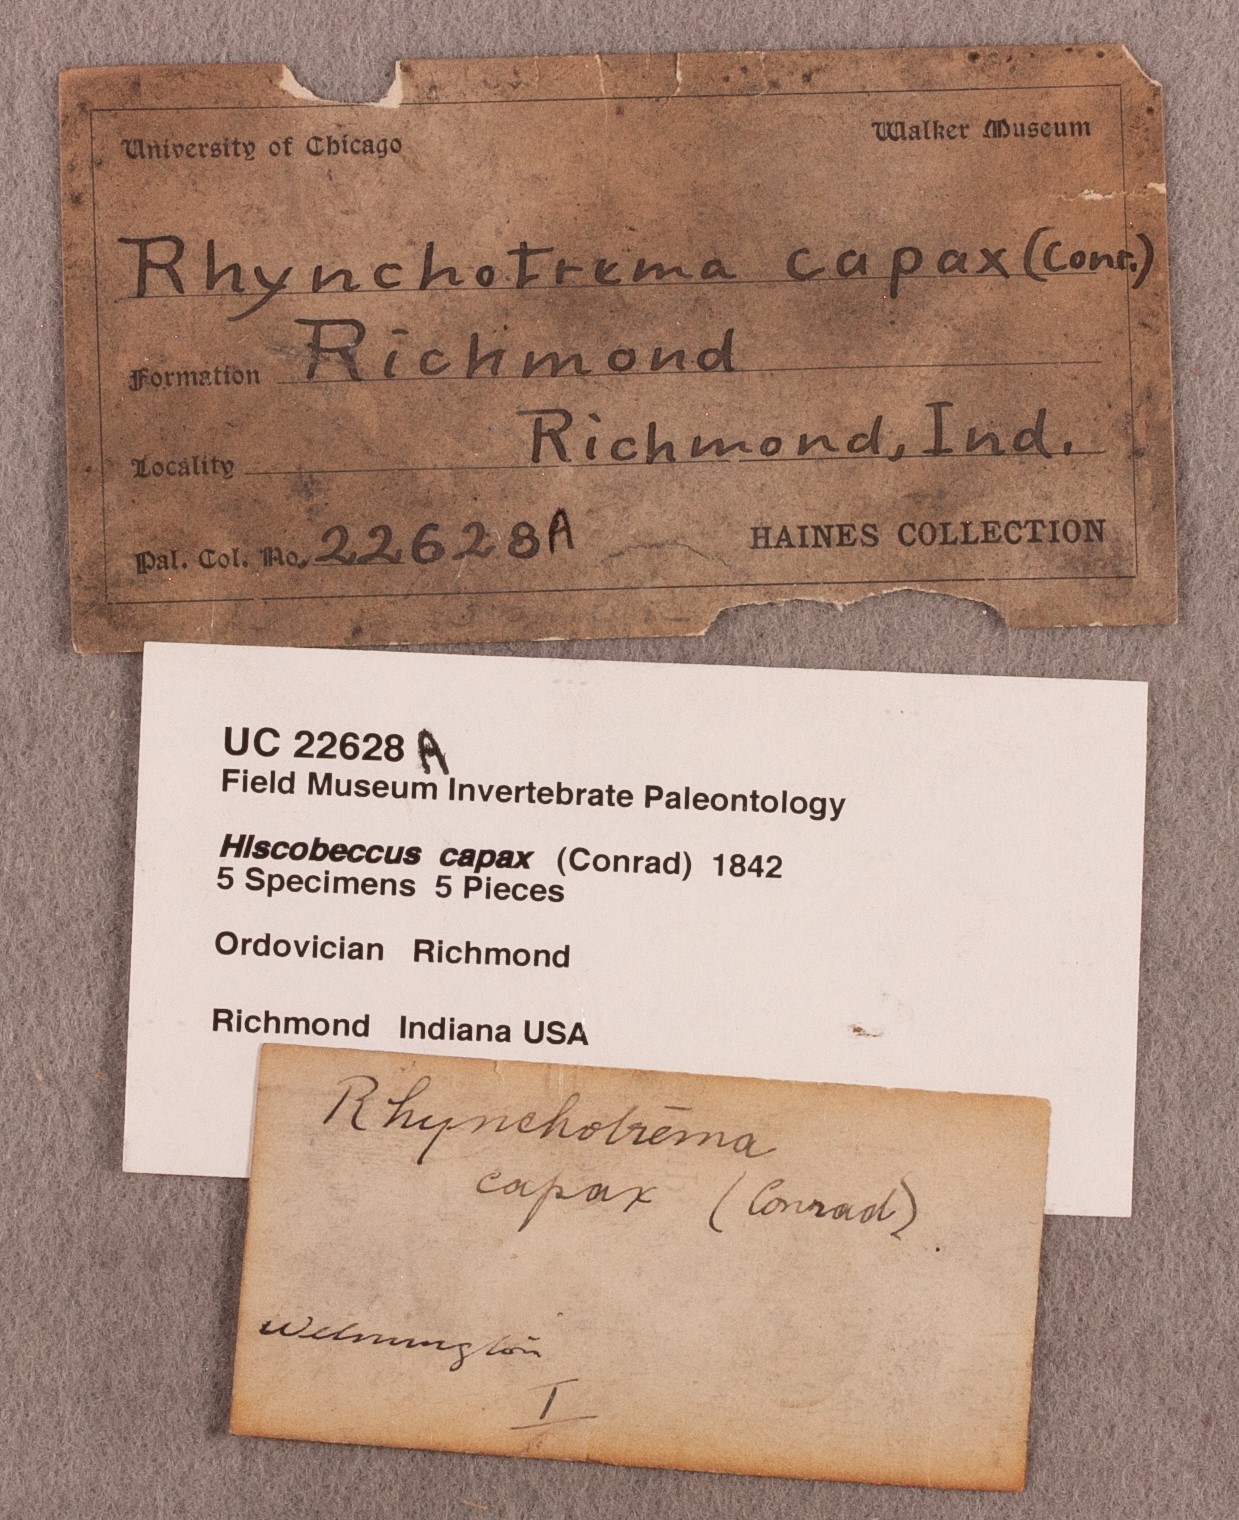 University of Chicago Walker Museum
Rhynchotrema capax (Conr.)
Formation Richmond
Locality Richmond, Ind.
Pal. Col. No. 22628A HAINES COLLECTION
UC 22628 A
Field Museum Invertebrate Paleontology
HIscobeccus capax (Conrad) 1842
5 Specimens 5 Pieces
Ordovician Richmond
Richmond Indiana USA
Rhynchotrema
capax (Conrad).
Wilmington
I